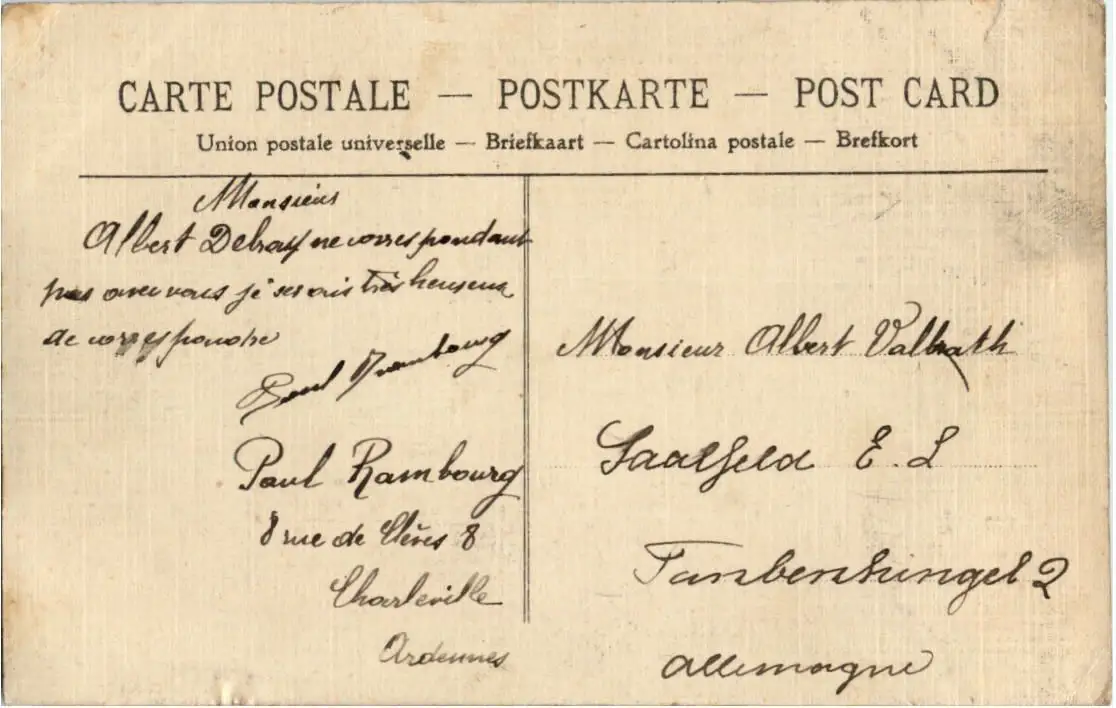 CARTE POSTALE — POSTKARTE — POST CARD
Union postale universelle — Briefkaart — Cartolina postale — Brefkort
Monsieur
Albert Delray ne correspondant
pas avec vous je serais très heureux
de correspondre
Paul Rambourg
Paul Rambourg
8 rue de Clèves 8
Charleville
Ardennes
Monsieur Albert Valbrath
Saalfeld E. L
2
Allemagne